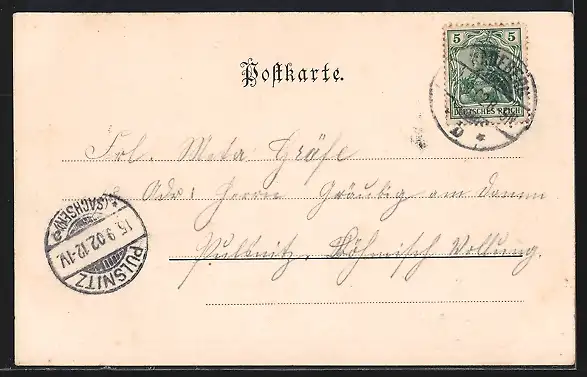 5 5
DEUTSCHES REICH
Postkarte.
Frl. Meta Gräfe
Adr: Herrn Gräubig am
Pulsnitz, Böhmisch Vollung.
*(SACHSEN)
15.9.02.12-1V.
PULSNITZ